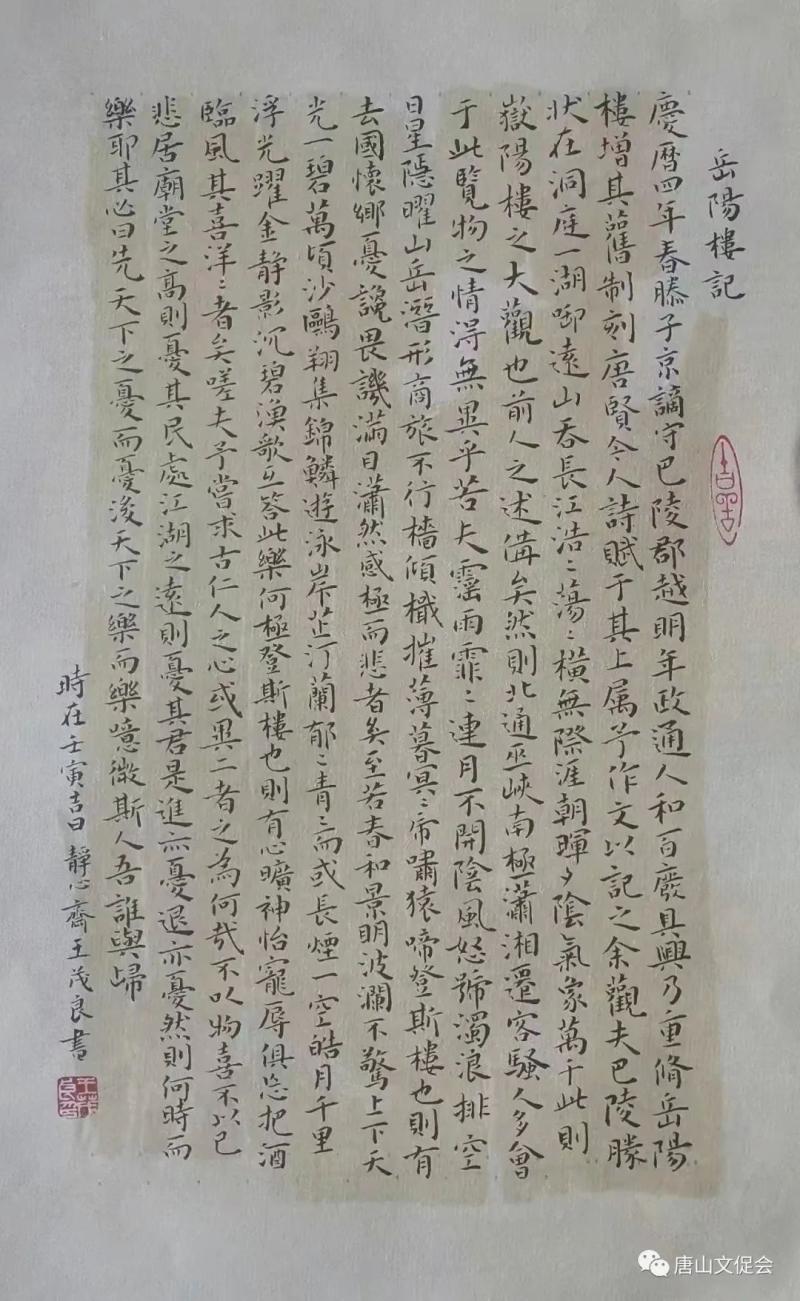 岳陽樓記
慶曆四年春滕子京謫守巴陵郡越明年政通人和百廢具興乃重脩岳陽
樓增其舊制刻唐賢今人詩賦于其上属予作文以記之余觀夫巴陵勝
狀在洞庭一湖啣遠山吞長江浩〻蕩〻橫無際涯朝暉夕陰氣象萬千此則
嶽陽樓之大觀也前人之述備矣然則北通巫峽南極瀟湘遷客騷人多會
于此覽物之情淂無異乎若夫霪雨霏〻連月不開陰風怒號濁浪排空
日星隱曜山岳潛形商旅不行檣傾檝摧薄暮冥〻帍嘯猿啼登斯樓也則有
去國懷鄉憂讒畏譏滿目瀟然感極而悲者矣至若春和景明波瀾不驚上下天
光一碧萬頃沙鷗翔集錦鱗遊泳岸芷汀蘭郁〻青〻而或長煙一空皓月千里
浮光躍金靜影沉碧漁歌互答此樂何極登斯樓也則有心曠神怡寵辱俱忘把酒
臨風其喜洋〻者矣嗟夫予嘗求古仁人之心或異二者之為何哉不以物喜不以己
悲居廟堂之高則憂其民處江湖之遠則憂其君是進亦憂退亦憂然則何時而
樂耶其必曰先天下之憂而憂後天下之樂而樂噫微斯人吾誰與歸
時在壬寅吉日靜心齋王茂良書
唐山文促会